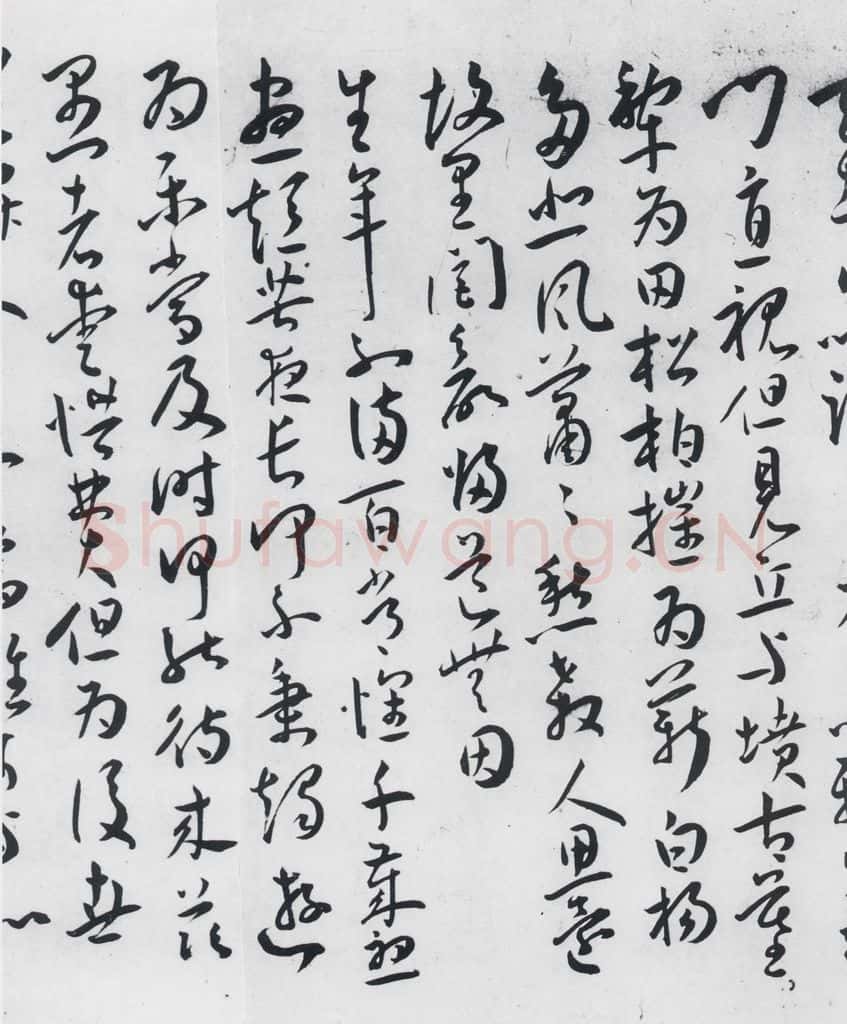 門直視但見丘与墳古墓
犁为田松柏摧为薪白楊
多悲風蕭〻愁殺人思還
故里閭欲歸道無因
生年不滿百常懷千歲憂
晝短苦夜長何不秉燭遊
为樂當及時何能待来茲
愚者愛惜費但为後世
Shufawang.CN